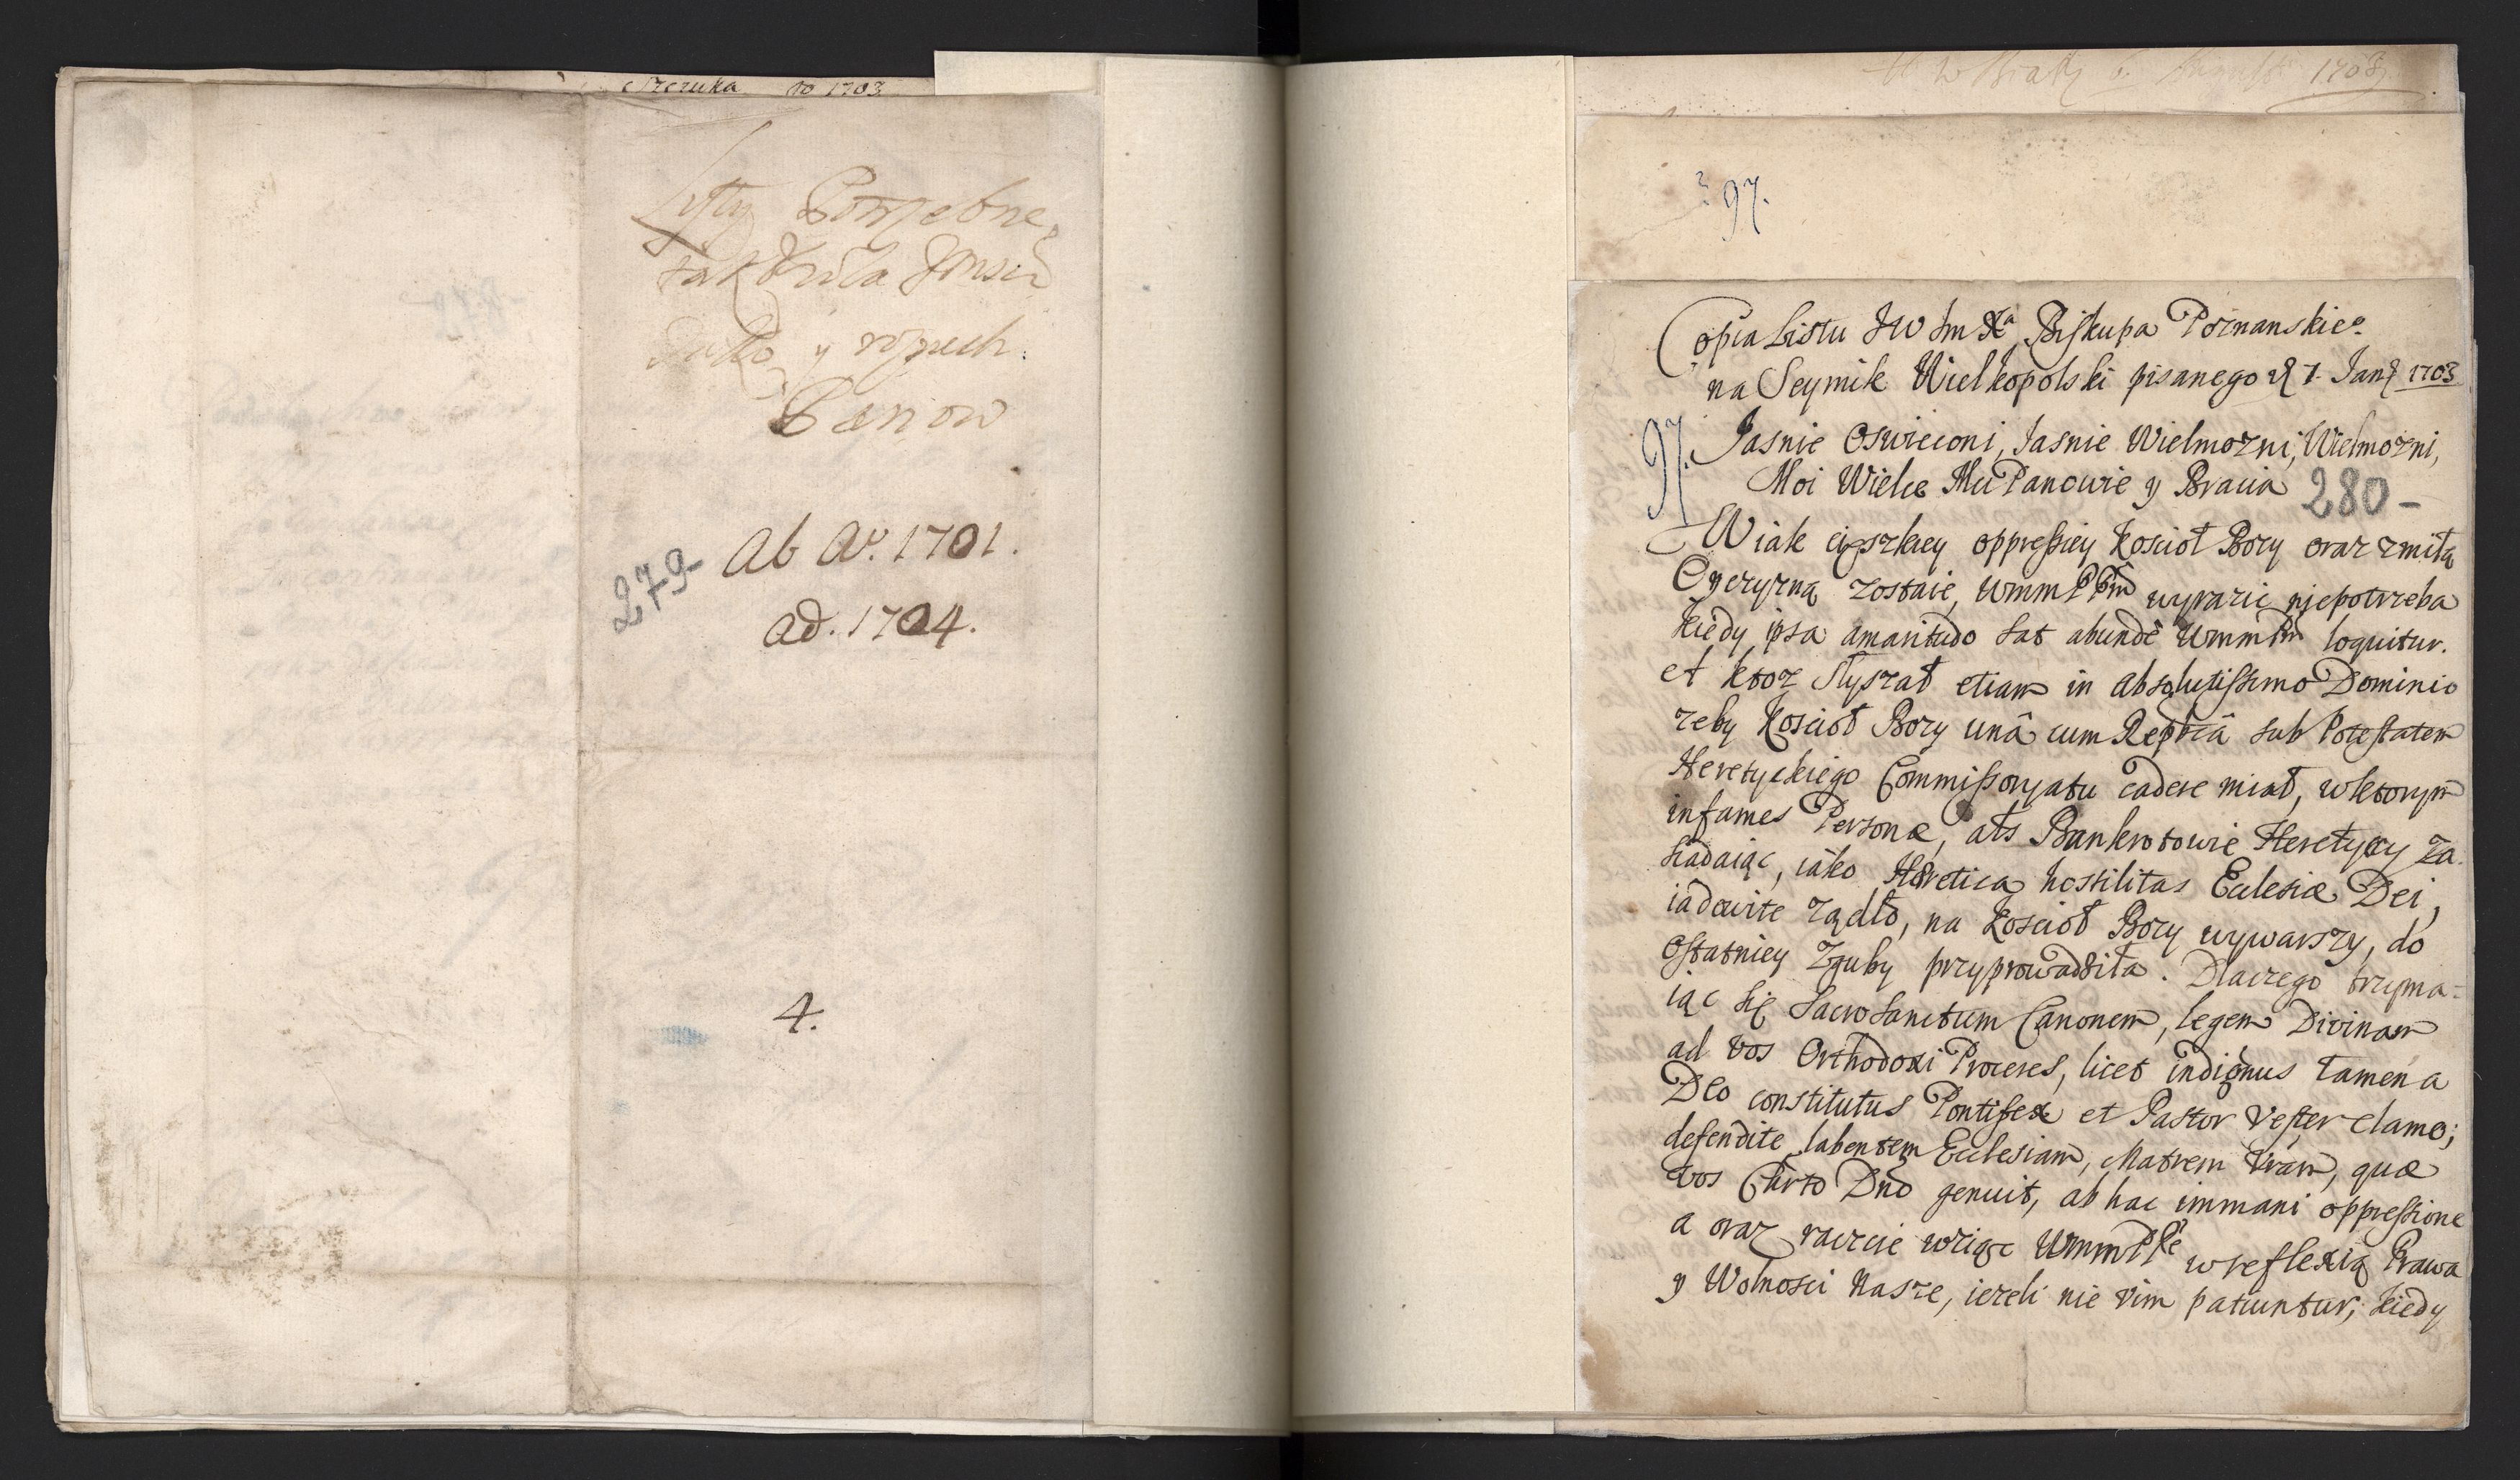 Szczuka 1703
Listy Potrzebne,
tak Krola Jmsci
jako y roznych
Panow
Ab Ao. 1701.
279-
ad. 1704.
4.
1703
97.
Copia Listu JW Jm Xa Biskupa Poznanskieo
na Seymik Wielkopolski pisanego d 7. Jan 1703
97. Jasnie Oswieceni, Jasnie Wielmozni, Wielmozni,
Moi Wielce Mci Panowie y Bracia 280-
W iak cięszkiey oppressiey Koscioł Bozy oraz z miłą
Oyczyzną zostaie, WmmPPm wyrazic niepotrzeba
kiedy ipsa amaritudo sat abundè WmmPm loquitur.
et ktoz słyszał etiam in absolutissimo Dominio
zeby Koscioł Bozy unâ cum Repbcâ sub Potestatem
Heretyckiego Commissoryatu cadere miał, w ktorym
infames Personæ, als Bankrotowie Heretycy za
siadaiąc, iáko Hæretica hostilitas Ecclesiæ Dei,
iadowite ządło, na Koscioł Bozy wywarszy, do
ostatniey zguby przyprowadziła. Dlaczego trzyma=
iąc się Sacrosanctum Canonem, legem Divinam
ad vos Orthodoxi Proceres, licet indignus tamen a
Deo constitutus Pontifex et Pastor Vester clamo;
defendite labentem Ecclesiam, Matrem Vram, quæ
vos Chrto Dno genuit, ab hac immani oppressione
a oraz raczcie wziąc WmmPPe w reflexią Prawa
y Wolnosci nasze, iezeli nie vim patiuntur; kiedy